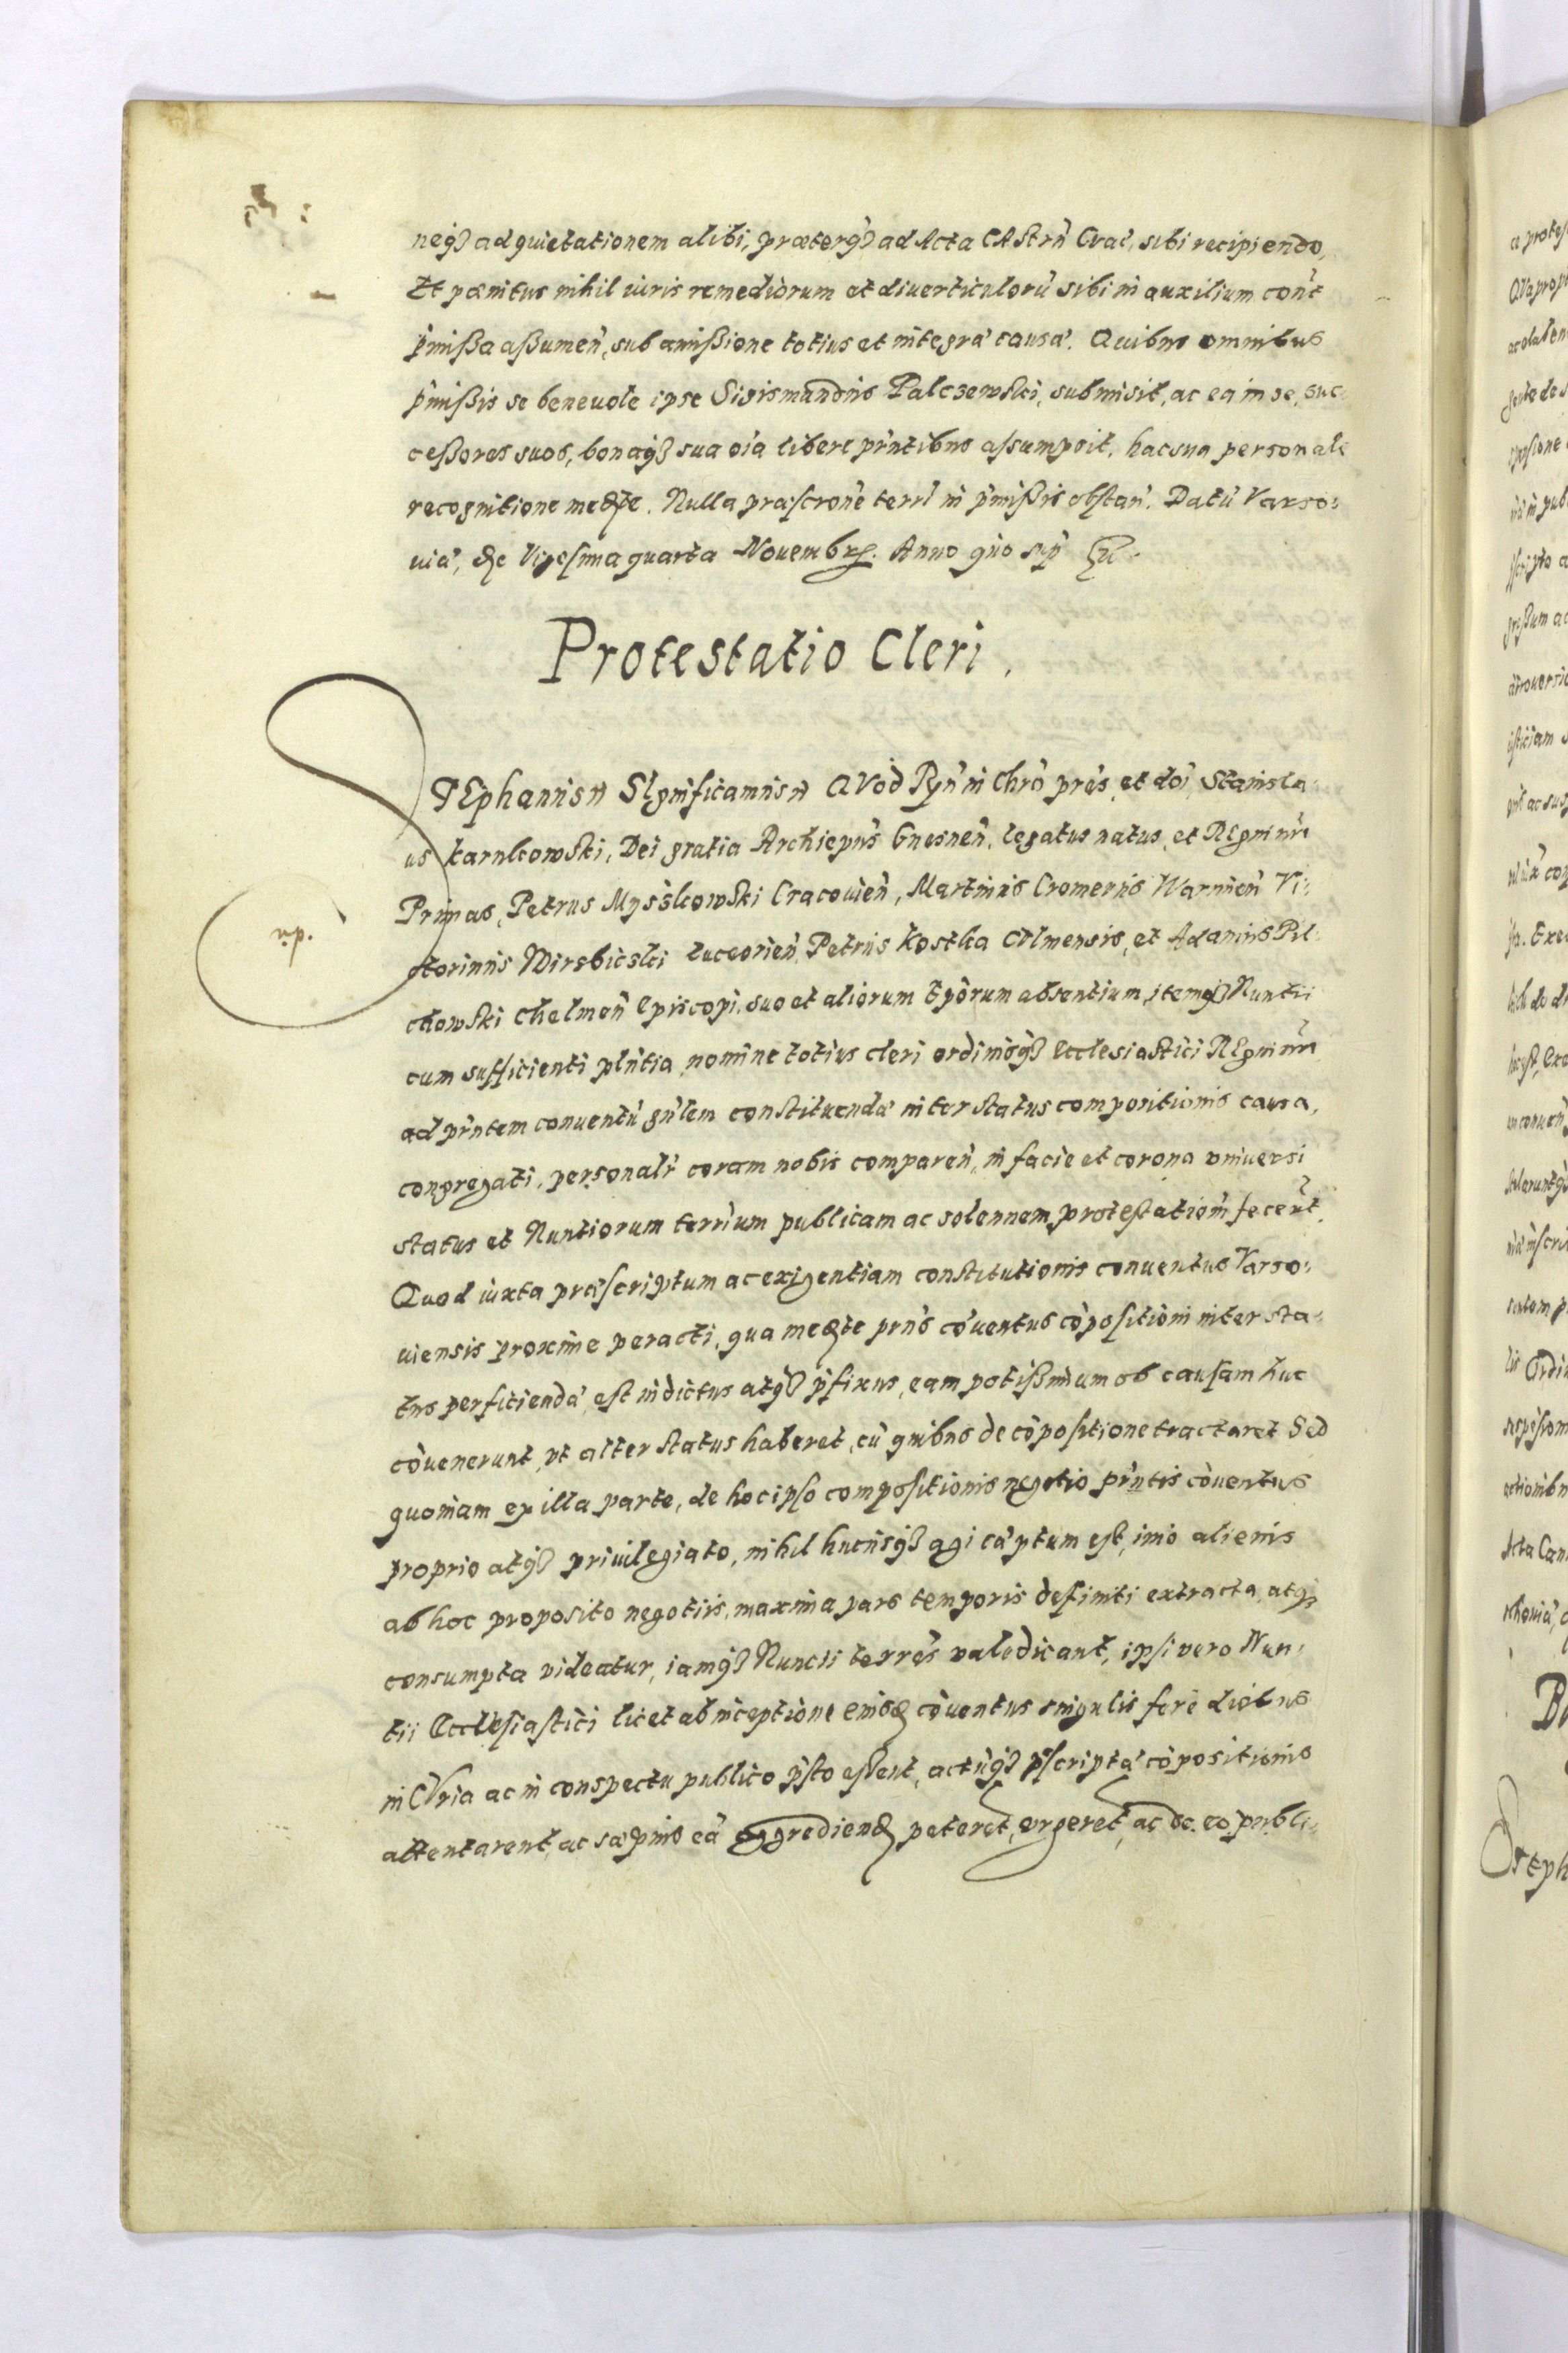 neq₃ ad quietationem alibi, præterq₃ ad Acta CAstrñ Crac̃, sibi recipiendo,
Et pœnitus nihil iuris remediorum et diuerticulorũ sibi in auxilium cont̃
p̃mißa aßumeñ, sub amißione totius et integræ causæ. Quibus omnibus
p̃mißis se beneuole ipse Sigismundus Palczewski, submisit, ac ea in se, suc-
ceßores suos, bonaq₃ sua oĩa libere pñtibus assumpsit, hac sua personale
recognitione med̃te. Nulla præscrone terrĩ in p̃mißis obstañ. Datũ Varso:
uiæ, die Vigesima quarta Nouembr. Anno quo sup̃
Protestatio Cleri.
STEphanus Significamus QVod Rñ in Chrõ pr̃es et doĩ Stanisla-
us Karnkowski, Dei gratia Archiepũs Gnesneñ, legatus natus, et REgni nr̃i
Primas, Petrus Mysskowski Cracouieñ, Martinus Cromerus Warmieñ Vi:
ctorinus Wirzbicski Luceorieñ Petrus Kostka CUlmensis, et Adamus Pil-
chowski Chelmeñ Episcopi, suo et aliorum Ep̃orum absentium, itemq₃ Nuntii
cum sufficienti plñtia nomine totius cleri ordinisq₃ Ecclesiastici REgni nr̃i
ad pñtem conuentũ gñlem constituendæ inter status compositionis causa,
congregati, personalr̃ coram nobis compareñ, in facie et corona vniuersi
status et Nuntiorum terrĩum publicam ac solennem protestatiom̃ fecer̃t.
Quod iuxta præscriptum ac exigentiam constitutionis conuentus Varso:
uiensis proxime peracti, qua med̃te prñs cõuentus cõpositioni inter sta-
tus perficiendæ, est indictus atq₃ p̃fixus, eam potißimum ob causam huc
cõuenerunt, vt alter status haberet, cũ quibus de cõpositione tractaret Sed
quoniam ex illa parte, de hoc ipso compositionis negotio pr̃ntis cõuentus
proprio atq₃ priuilegiato, nihil hucusq₃ agi cæptum est, imo alienis
ab hoc proposito negotiis, maxima pars temporis definiti extracta atq₃
consumpta videatur, iamq₃ Nuncii terrẽs valedicant, ipsi vero Nun-
tii Ecclesiastici licet ab inceptione eiusd̃ cõuentus singulis fere diebus
in CVria ac in conspectu publico p̃sto eßent, actũq₃ p̃scriptæ cõpositionis
attentarent, ac sæpius eã aggrediend̃ peteret, vrgeret, ac de eo publi-